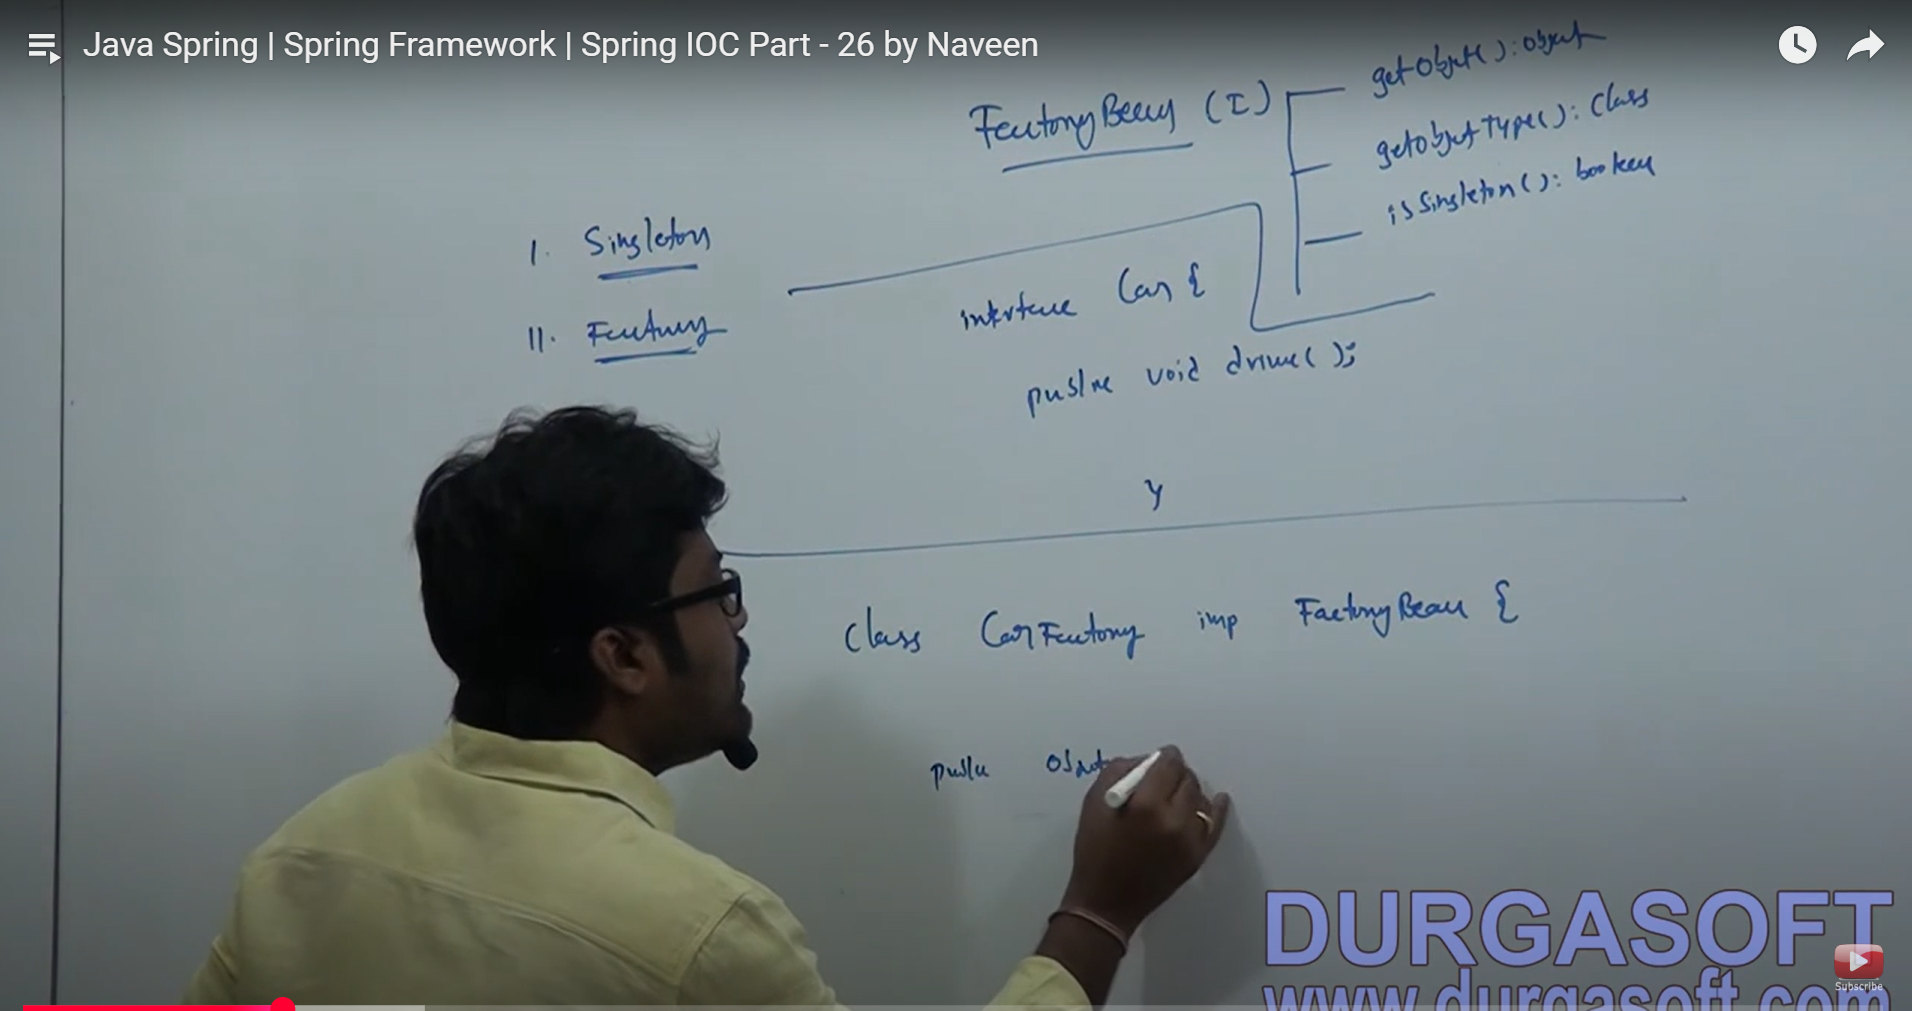 Java Spring | Spring Framework | Spring IOC Part - 26 by Naveen
FactoryBean (I)
getObject() : Object
getObjectType() : Class
isSingleton() : boolean
I. Singleton
II. Factory
interface Car {
public void drive();
}
class CarFactory imp FactoryBean {
public Object
DURGASOFT
www.durgasoft.com
Subscribe